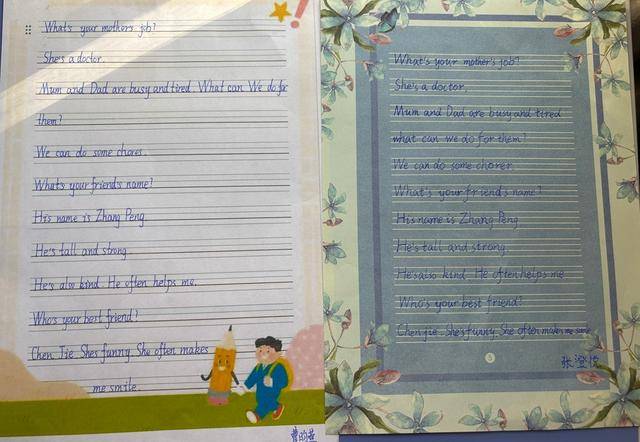 What's your mother's job?
She's a doctor.
Mum and Dad are busy and tired. What can We do for
them?
We can do some chores.
What's your friend's name?
His name is Zhang Peng.
He's tall and strong.
He's also kind. He often helps me.
Who's your best friend?
Chen Jie. She's funny. She often makes
me smile.
What's your mother's job?
She's a doctor.
Mum and Dad are busy and tired
what can we do for them?
We can do some chorer.
What's your friend's name?
His name is Zhang Peng.
He's tall and strong.
He's also kind. He often helps me
Who's your best friend?
Chen Jie. She's funny. She often makes me smile
张澄